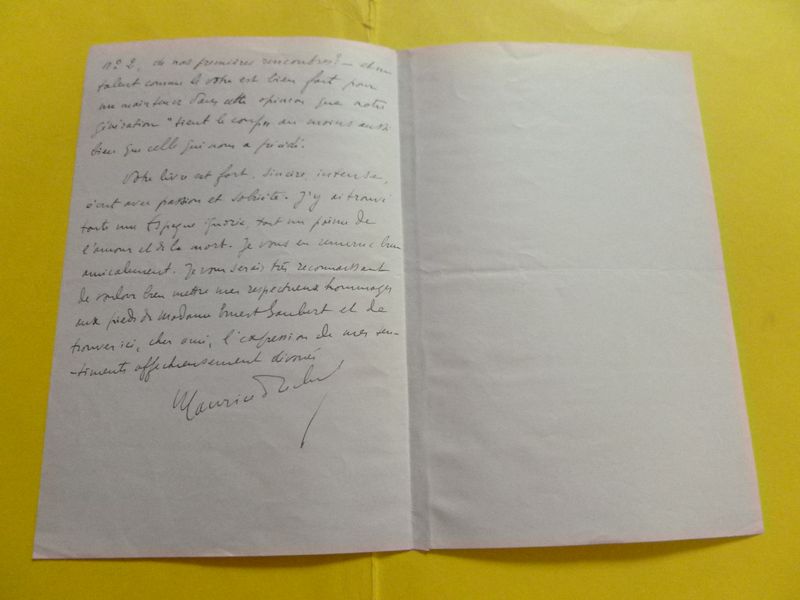 nº 2, de nos premières rencontres ? — et un
talent comme le vôtre est bien fait pour
me maintenir dans cette opinion que notre
génération "tient le coup" au moins aussi
bien que celle qui nous a précédé.
Votre livre est fort, sincère, intense,
écrit avec passion et sobriété. J'y ai trouvé
toute une Espagne tout un poème de
l'amour et de la mort. Je vous en remercie bien
amicalement. Je vous serais très reconnaissant
de vouloir bien mettre mes respectueux hommages
aux pieds de Madame Ernest Gaubert et de
trouver ici, cher ami, l'expression de mes sen-
-timents affectueusement dévoués
Maurice